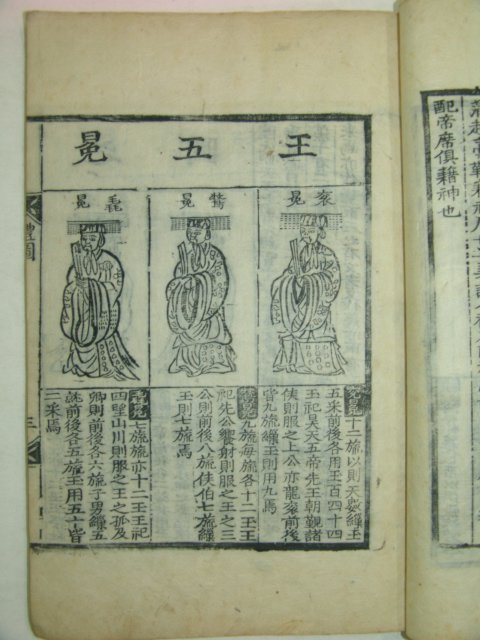 配帝席俱藉神也
王五冕
袞冕
鷩冕
毳冕
袞冕十二旒以則天數繅玉
五采前後各用玉百四十四
玉祀昊天五帝先王朝觀諸
侯則服之上公亦龍袞前後
皆九旒繅玉則用九焉
鷩冕九旒每旒各十二玉王
祀先公饗射則服之王之三
公則前後八旒侯伯七旒繅
玉則七旒焉
毳冕七旒旒亦十二玉王祀
四望山川則服之王之孤及
卿則前後各六旒子男繅五
就前後各五旒玉用五皆
二采焉
禮圖
三